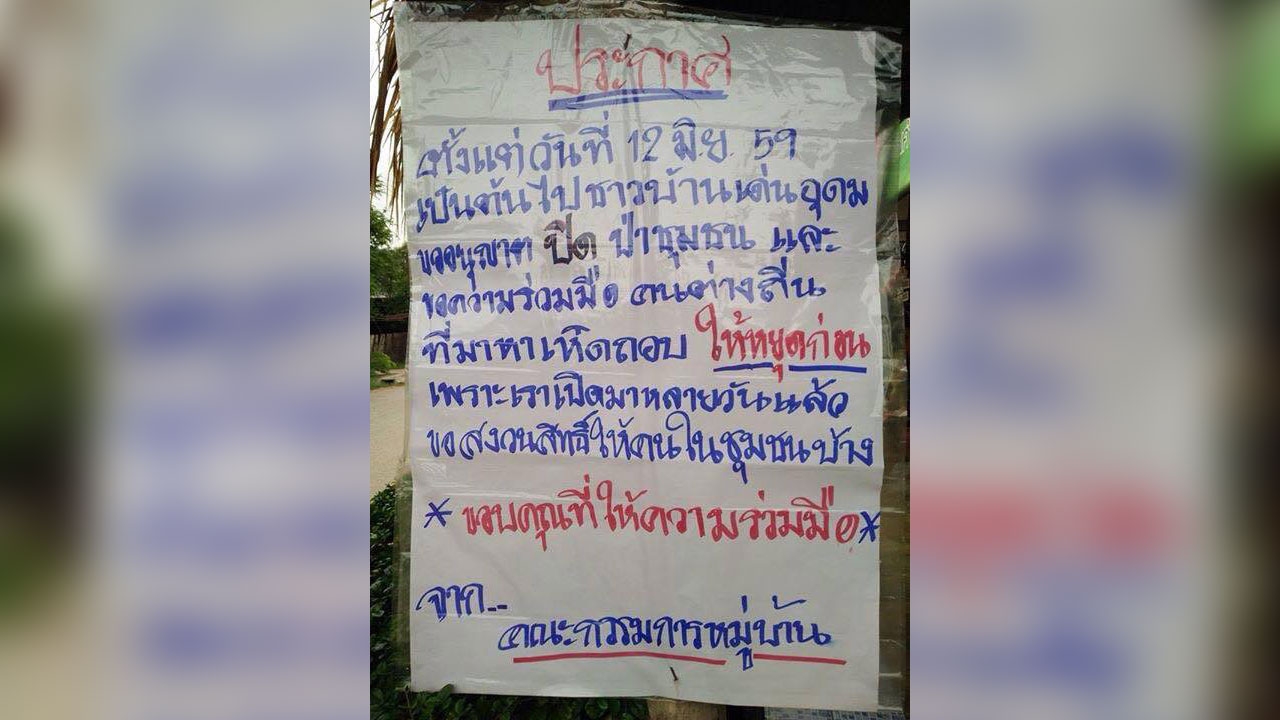 ประกาศ
ตั้งแต่วันที่ 12 มิ.ย. 59
เป็นต้นไปชาวบ้านเด่นอุดม
ขออนุญาต ปิด ป่าชุมชน และ
ขอความร่วมมือ คนต่างถิ่น
ที่มาหาเห็ดถอบ ให้หยุดก่อน
เพราะเราเปิดมาหลายวันแล้ว
ขอสงวนสิทธิ์ให้คนในชุมชนบ้าง
* ขอบคุณที่ให้ความร่วมมือ *
จาก..
คณะกรรมการหมู่บ้าน